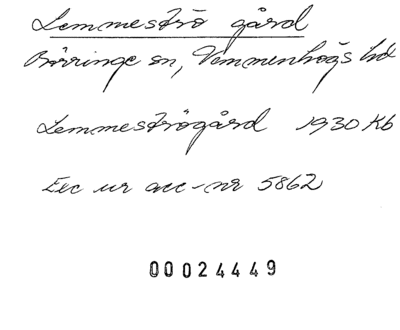 Lemmeströ gård
Börringe sn, Vemmenhögs hd
Lemmeströgård 1930 Kb
Exc ur acc-nr 5862
00024449